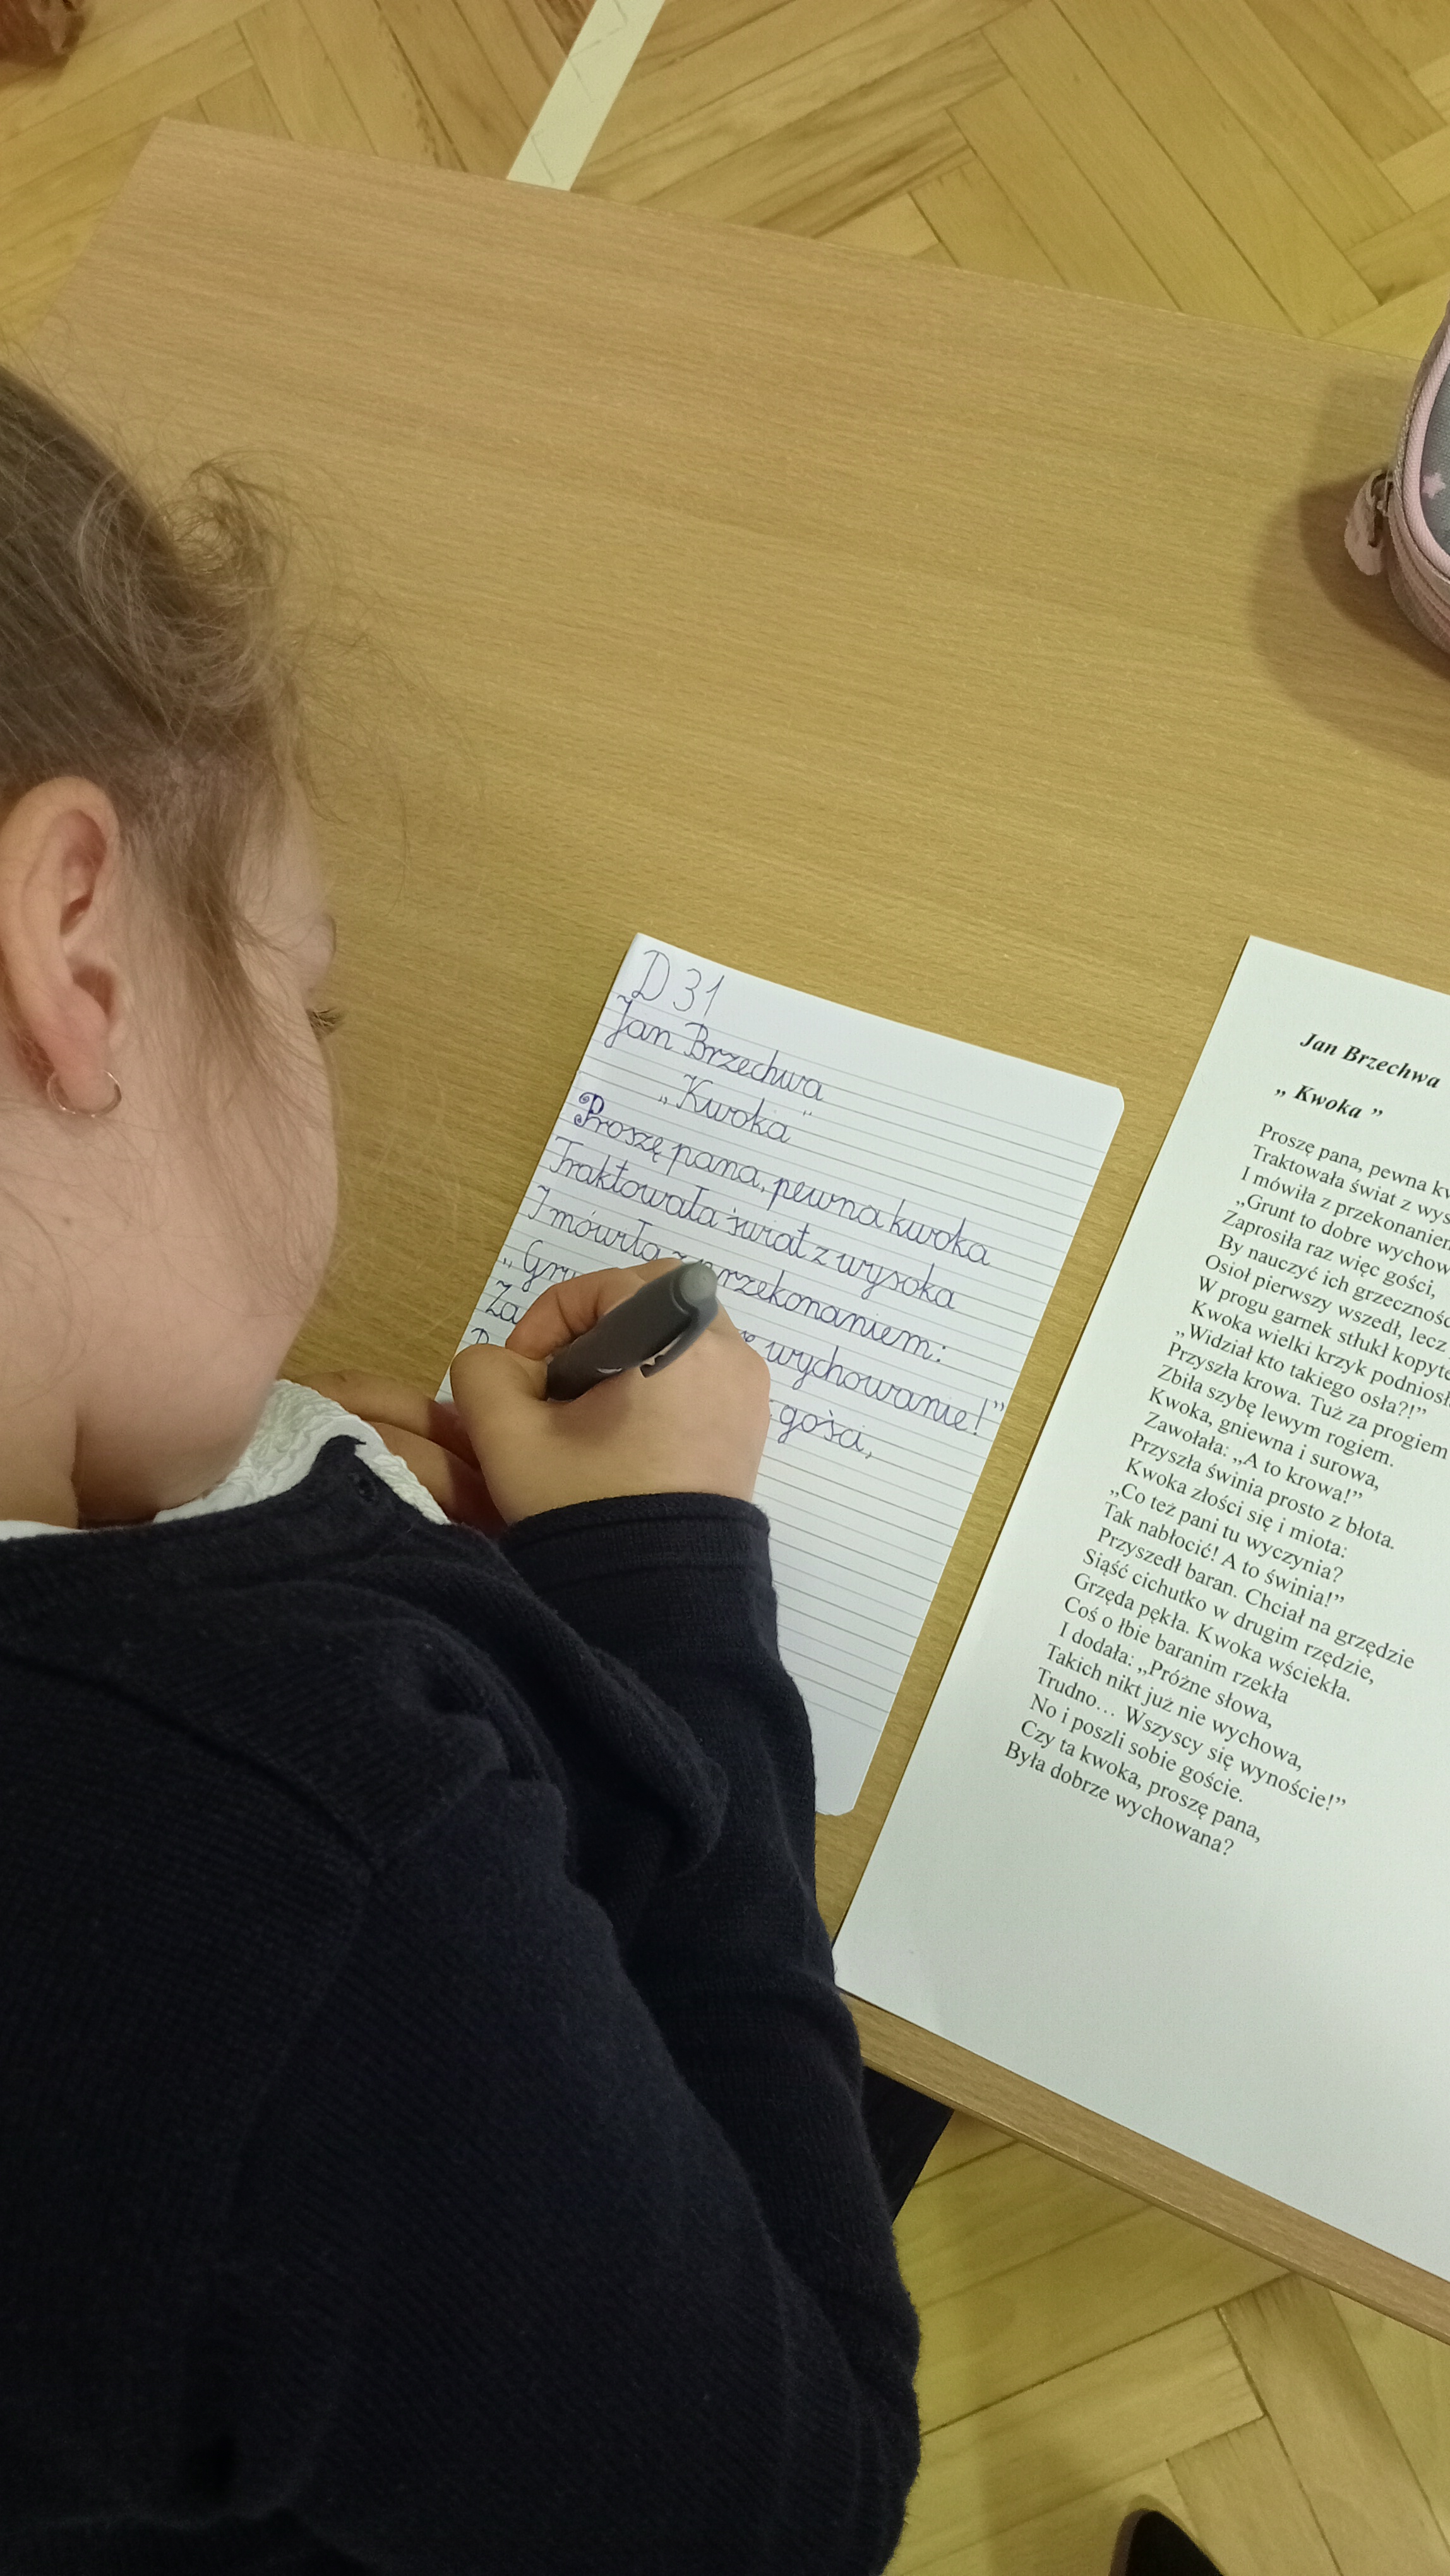 D 31
Jan Brzechwa
„Kwoka"
Proszę pana, pewna kwoka
Traktowała świat z wysoka
I mówiła z przekonaniem:
„Gru wychowanie!”
Za gości,
Jan Brzechwa
„ Kwoka ”
Proszę pana, pewna kw
Traktowała świat z wys
I mówiła z przekonaniem
„Grunt to dobre wychow
Zaprosiła raz więc gości,
By nauczyć ich grzecznośc
Osioł pierwszy wszedł, lecz
W progu garnek stłukł kopyte
Kwoka wielki krzyk podniosła
„Widział kto takiego osła?!”
Przyszła krowa. Tuż za progiem
Zbiła szybę lewym rogiem.
Kwoka, gniewna i surowa,
Zawołała: „A to krowa!”
Przyszła świnia prosto z błota.
Kwoka złości się i miota:
„Co też pani tu wyczynia?
Tak nabłocić! A to świnia!”
Przyszedł baran. Chciał na grzędzie
Siąść cichutko w drugim rzędzie,
Grzęda pękła. Kwoka wściekła.
Coś o łbie baranim rzekła
I dodała: „Próżne słowa,
Takich nikt już nie wychowa,
Trudno… Wszyscy się wynoście!”
No i poszli sobie goście.
Czy ta kwoka, proszę pana,
Była dobrze wychowana?